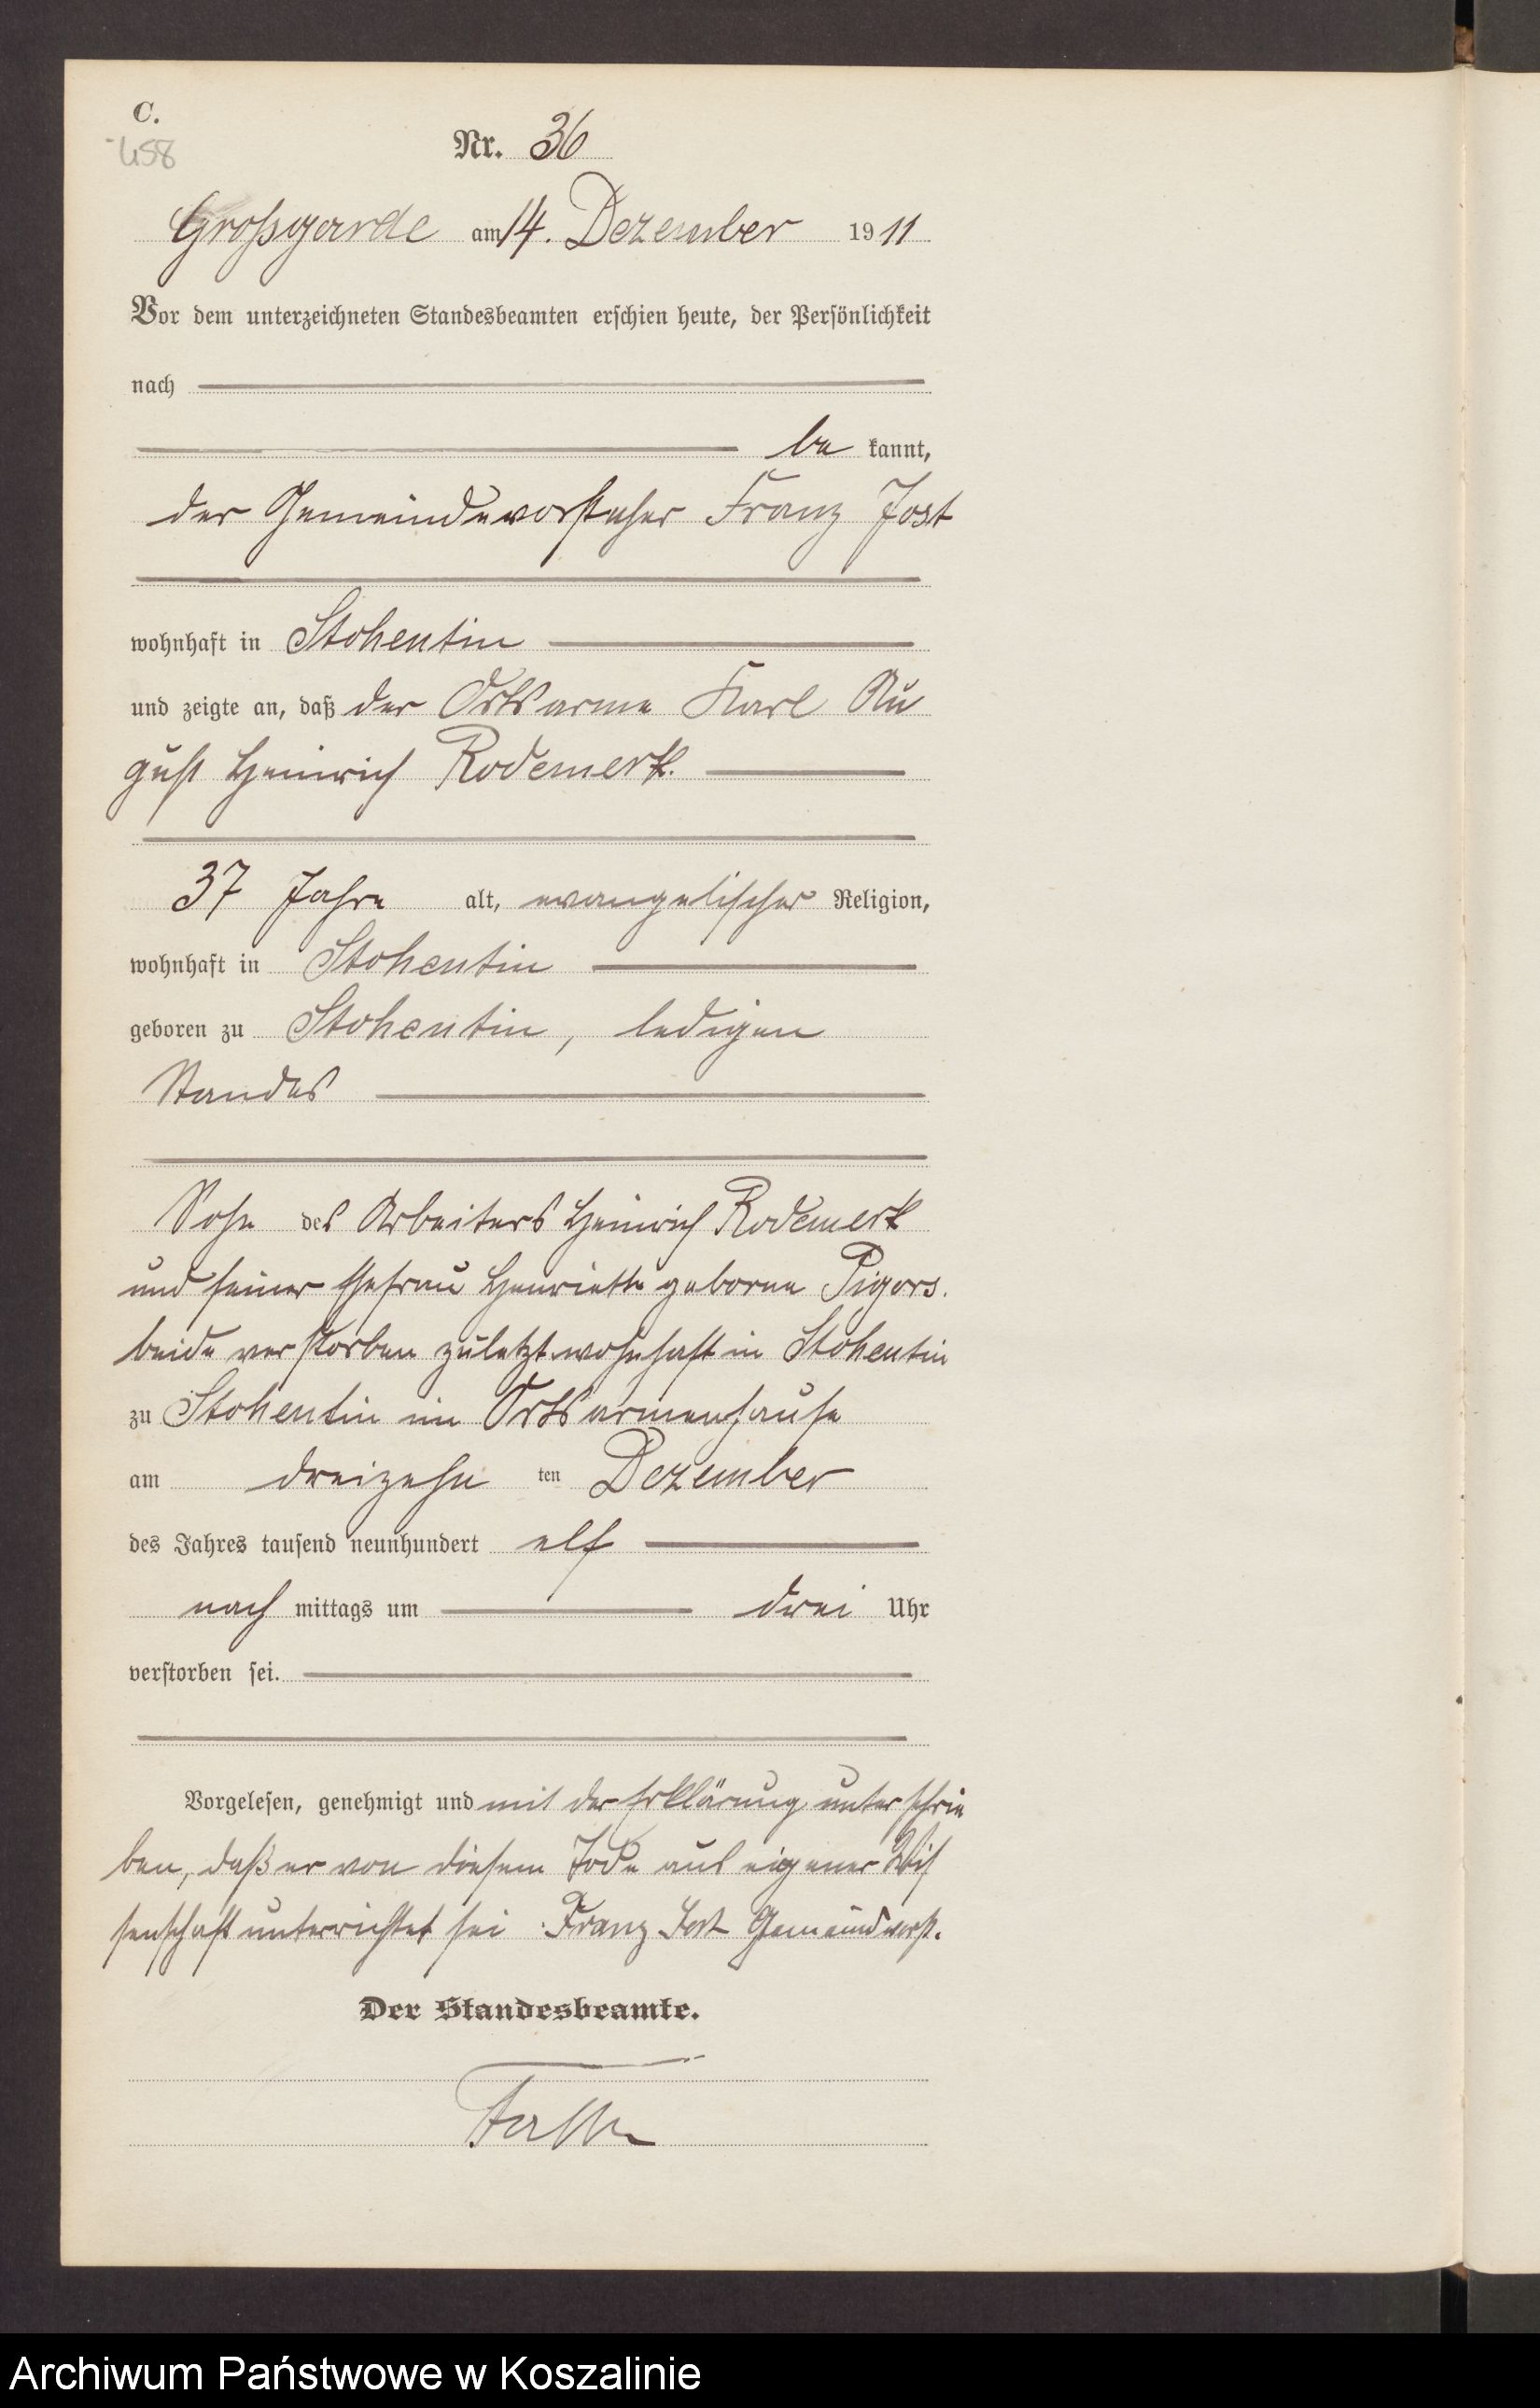 C.
458
Nr. 36
Großgarde am 14. Dezember 1911
Vor dem unterzeichneten Standesbeamten erschien heute, der Persönlichkeit
nach
be kannt,
der Gemeindevorsteher Franz Jost
wohnhaft in Stohentin
und zeigte an, daß der Ortsarme Karl Au
gust Heinrich Rodemerk.
37 Jahre alt, evangelischer Religion,
wohnhaft in Stohentin
geboren zu Stohentin, ledigen
Standes
Sohn des Arbeiters Heinrich Rodemerk
und seiner Ehefrau Henriette geborne Pigors.
beide verstorben zuletzt wohnhaft in Stohentin
zu Stohentin im Ortsarmenhause
am dreizehn ten Dezember
des Jahres tausend neunhundert elf
nach mittags um drei Uhr
verstorben sei.
Vorgelesen, genehmigt und mit der Erklärung unterschrie
ben, daß er von diesem Tode aus eigener Wis
senschaft unterrichtet sei. Franz Jost Gemeindevorst.
Der Standesbeamte.
Archiwum Państwowe w Koszalinie